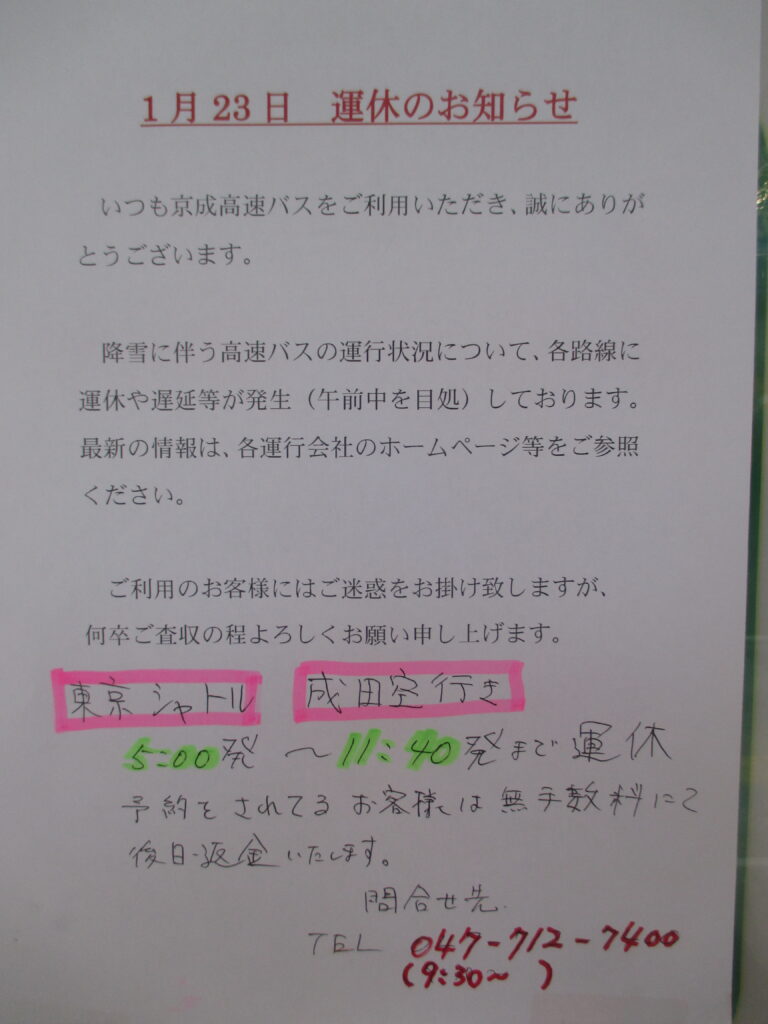 1月23日　運休のお知らせ
いつも京成高速バスをご利用いただき、誠にありが
とうございます。
降雪に伴う高速バスの運行状況について、各路線に
運休や遅延等が発生（午前中を目処）しております。
最新の情報は、各運行会社のホームページ等をご参照
ください。
ご利用のお客様にはご迷惑をお掛け致しますが、
何卒ご査収の程よろしくお願い申し上げます。
東京シャトル　成田空行き
5:00発　～11:40発まで運休
予約をされてるお客様は無手数料にて
後日返金いたします。
問合せ先
TEL 047-712-7400
(9:30～　)